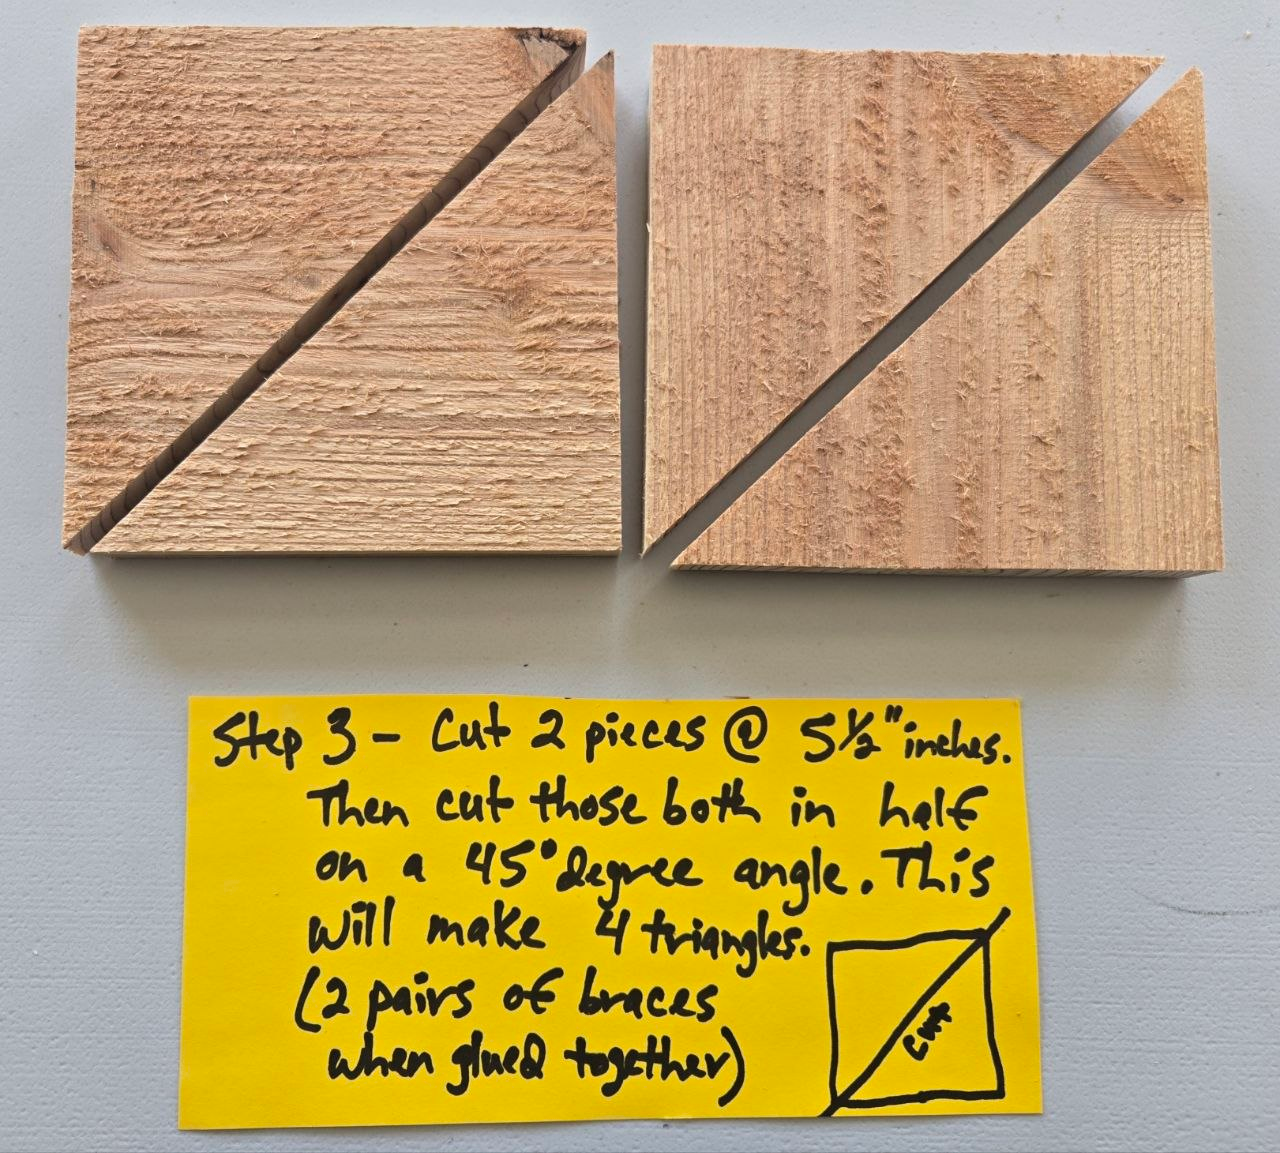 Step 3 - Cut 2 pieces @ 5 1/2" inches.
Then cut those both in half
on a 45° degree angle. This
will make 4 triangles.
(2 pairs of braces
when glued together)
cut